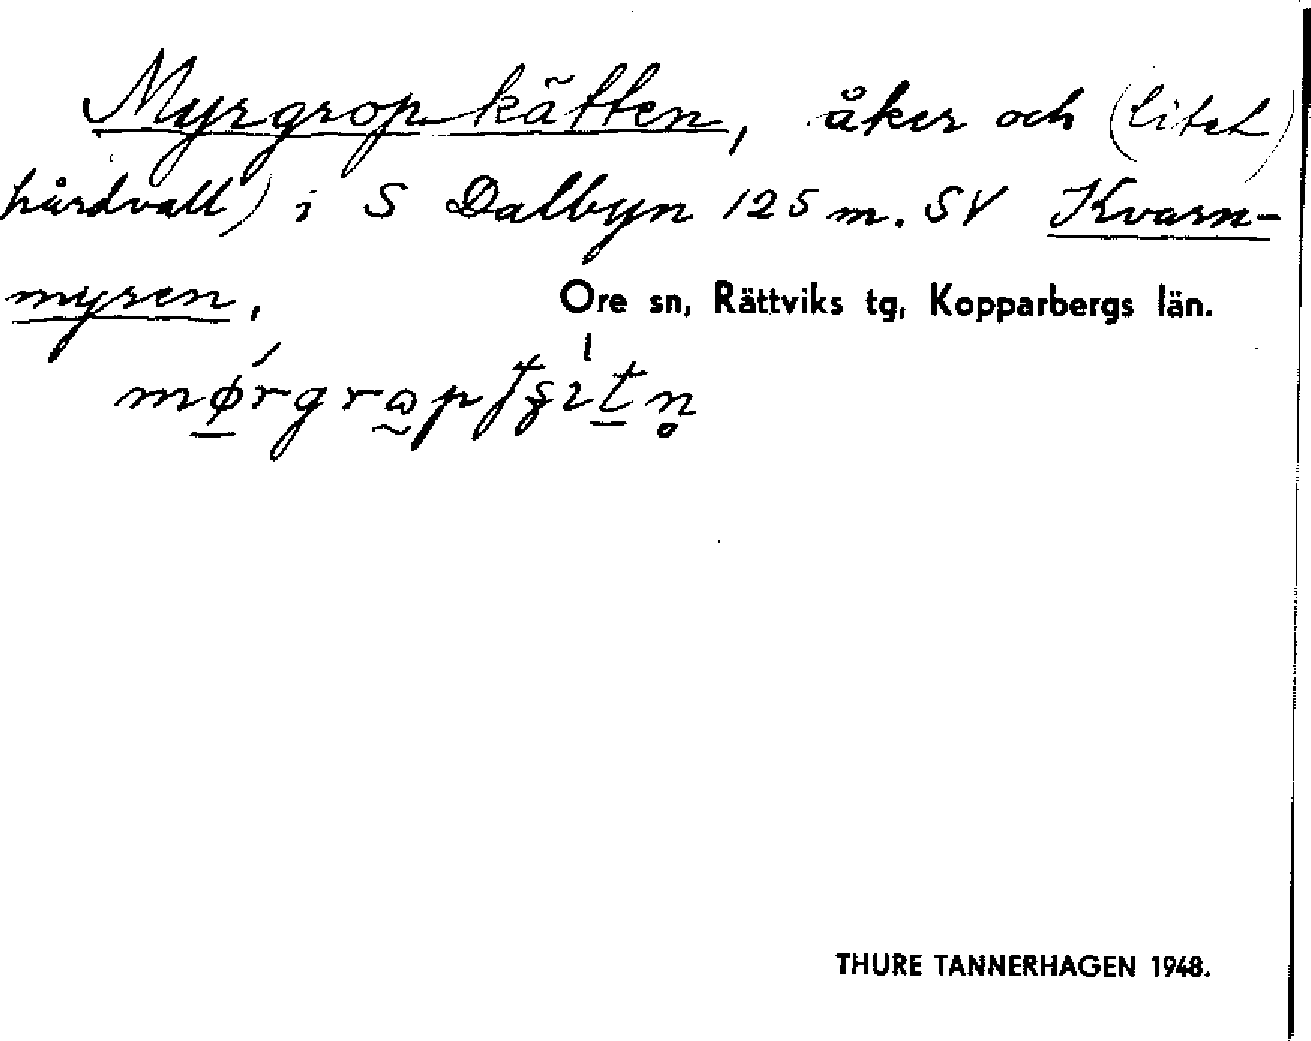 Myrgropkätten, åker och (litet)
hårdvall) i S Dalbyn 125 m. SV Kvarn-
myren,
Ore sn, Rättviks tg, Kopparbergs län.
THURE TANNERHAGEN 1948.